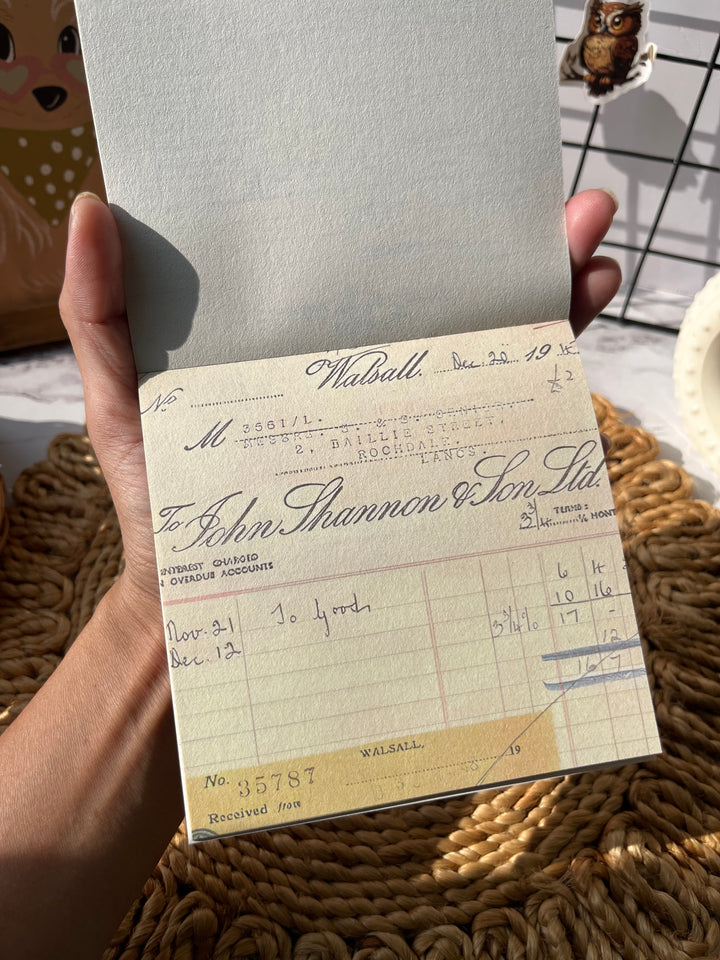 Walsall. Dec 20 19
No
½ 2
M 3561/L.
2, BAILLIE STREET,
ROCHDALE,
LANCS.
To John Shannon & Son Ltd.
3¾ TERMS:
INTEREST CHARGED
OVERDUE ACCOUNTS
6 14
Nov. 21 To Goods 10 16
Dec. 12 3¾% 17 -
12
16 7
WALSALL, 19
No. 35787
Received from